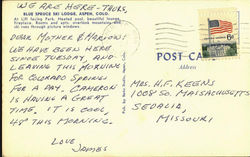 WE ARE HERE - THURS.
BLUE SPRUCE SKI LODGE, ASPEN, COLO.
At Lift facing Park. Heated pool, beautiful lounge,
fireplace. Rooms and apts. overlook mountains and
ski runs through picture windows.
DEAR MOTHER & MARION:
WE HAVE BEEN HERE
SINCE TUESDAY, AND
LEAVING THIS MORNING
FOR COLORADO SPRINGS
FOR A DAY. CAMERON
IS HAVING A GREAT
TIME. IT IS COOL
48 THIS MORNING.
LOVE
JAMES
POST CARD
6c
MRS. H.F. KEGENS
1008 SO. MASSACHUSETTS
SEDALIA,
MISSOURI